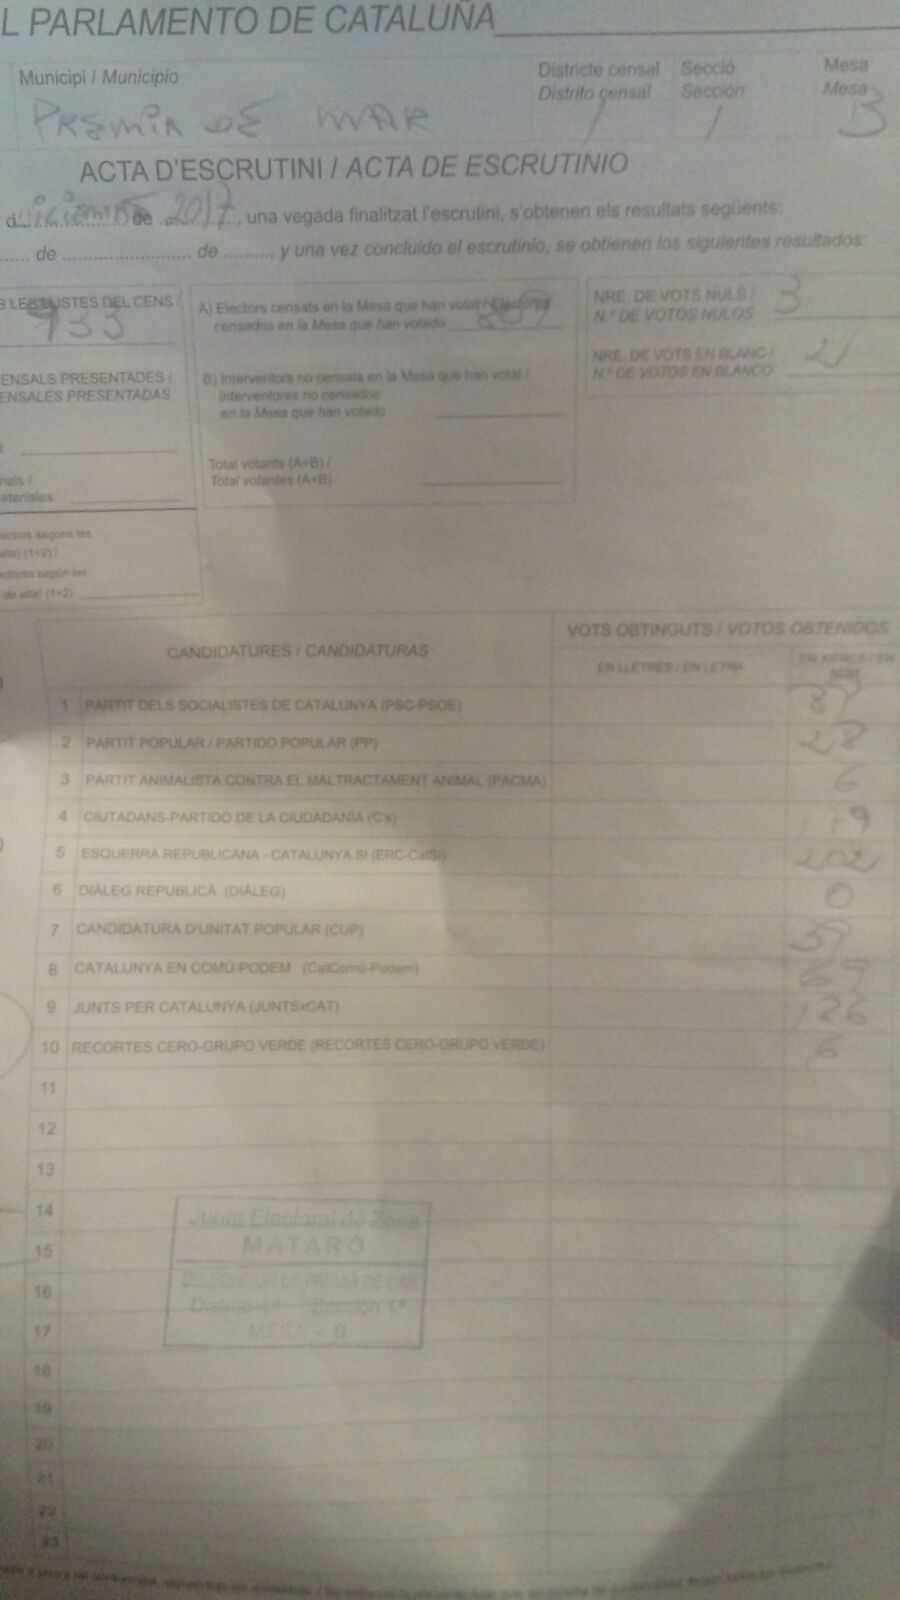 L PARLAMENTO DE CATALUÑA
Municipi / Municipio
Districte censal
Distrito censal
Secció
Sección
Mesa
Mesa
PREMIA DE MAR 1 1 B
ACTA D'ESCRUTINI / ACTA DE ESCRUTINIO
d diciembre de 2017, una vegada finalitzat l'escrutini, s'obtenen els resultats següents:
de de , y una vez concluido el escrutinio, se obtienen los siguientes resultados:
S LES LLISTES DEL CENS /
933
ENSALS PRESENTADES /
ENSALES PRESENTADAS
nals /
ateriales:
ectors segons les
(1+2) /
ectores según las
de alta) (1+2)
A) Electors censats en la Mesa que han votat / Electores
censados en la Mesa que han votado
B) Interventors no censats en la Mesa que han votat /
Interventores no censados
en la Mesa que han votado
Total votants (A+B) /
Total votantes (A+B)
NRE. DE VOTS NULS / 3
N.º DE VOTOS NULOS
NRE. DE VOTS EN BLANC /
N.º DE VOTOS EN BLANCO
CANDIDATURES / CANDIDATURAS
VOTS OBTINGUTS / VOTOS OBTENIDOS
EN LLETRES / EN LETRA
EN XIFRES / EN
NÚM.
1 PARTIT DELS SOCIALISTES DE CATALUNYA (PSC-PSOE)
2 PARTIT POPULAR / PARTIDO POPULAR (PP) 28
3 PARTIT ANIMALISTA CONTRA EL MALTRACTAMENT ANIMAL (PACMA) 6
4 CIUTADANS-PARTIDO DE LA CIUDADANÍA (C's)
5 ESQUERRA REPUBLICANA - CATALUNYA SÍ (ERC-CatSí)
6 DIÀLEG REPUBLICÀ (DIÀLEG) 0
7 CANDIDATURA D'UNITAT POPULAR (CUP)
8 CATALUNYA EN COMÚ-PODEM (CatComú-Podem)
9 JUNTS PER CATALUNYA (JUNTSxCAT) 126
10 RECORTES CERO-GRUPO VERDE (RECORTES CERO-GRUPO VERDE) 6
11
12
13
14
15
16
17
18
19
20
21
22
23
Junta Electoral de Zona
MATARÓ
DELEGACION DE PREMIA DE MAR
Distrito 1º Sección 1ª
MESA - B